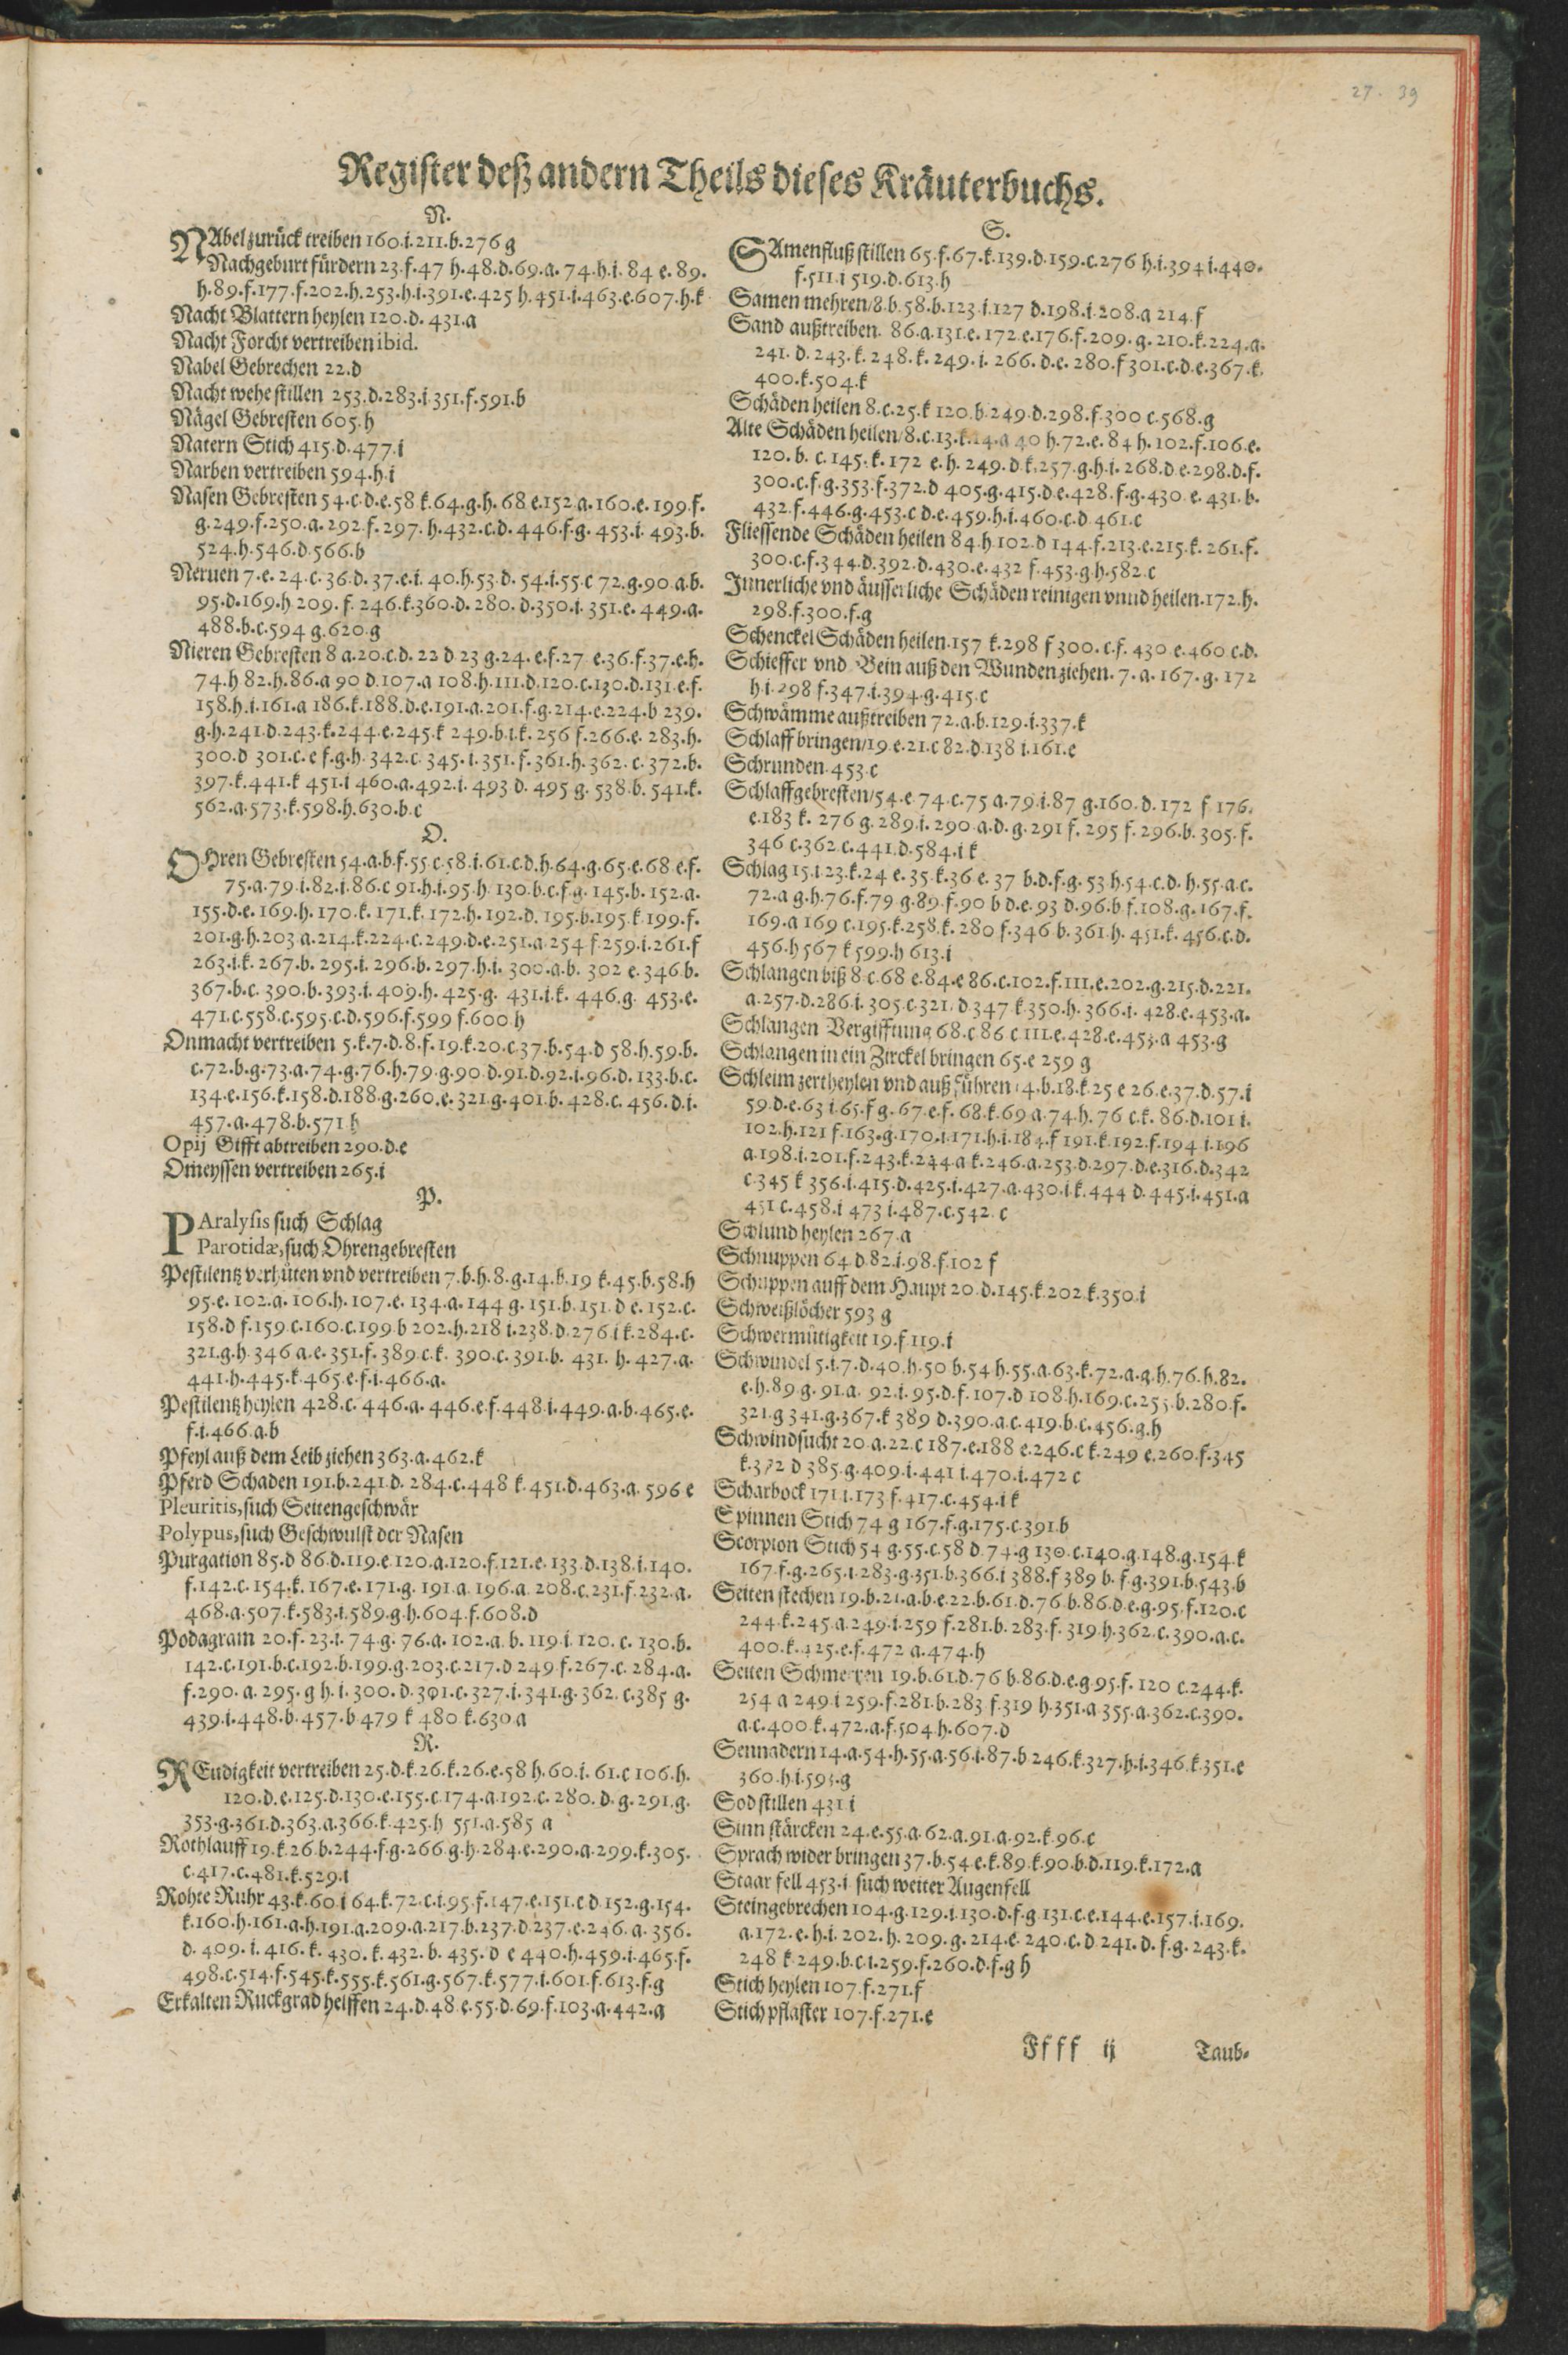 27. 39
Register deß andern Theils dieses Kräuterbuchs.
N.
NAbel zurück treiben 160.i.211.b.276 g
Nachgeburt fürdern 23.f.47 h.48.d.69.a. 74.h.i. 84 e. 89.
h.89.f.177.f.202.h.253.h.i.391.e.425 h.451.i.463.e.607.h.k
Nacht Blattern heylen 120.d. 431.a
Nacht Forcht vertreiben ibid.
Nabel Gebrechen 22.d
Nacht wehe stillen 253.d.283.i.351.f.591.b
Nägel Gebresten 605.h
Natern Stich 415.d.477.i
Narben vertreiben 594.h.i
Nasen Gebresten 54.c.d.e.58 k.64.g.h. 68 e.152.a.160.e. 199.f.
g.249.f.250.a. 292.f. 297. h.432.c.d. 446.f.g. 453.i. 493.b.
524.h.546.d.566.b
Neruen 7.e. 24.c. 36.d. 37.e.i. 40.h.53.d. 54.i.55.c 72.g.90.a.b.
95.d.169.h 209. f. 246.k.360.d. 280. d.350.i. 351.e. 449.a.
488.b.c.594 g.620.g
Nieren Gebresten 8 a.20.c.d. 22 d 23 g.24. e.f.27 e.36.f.37.e.h.
74.h 82.h.86.a 90 d.107.a 108.h.111.d.120.c.130.d.131.e.f.
158.h.i.161.a 186.k.188.d.e.191.a.201.f.g.214.e.224.b 239.
g.h.241.d.243.k.244.e.245.k 249.b.i.k. 256 f.266.e. 283.h.
300.d 301.c.e f.g.h. 342.c. 345. i. 351. f. 361.h. 362. c. 372.b.
397.k.441.k 451.i 460.a.492.i. 493 d. 495 g. 538.b. 541.k.
562.a.573.k.598.h.630.b.c
O.
OHren Gebresten 54.a.b.f.55 c.58.i.61.c.d.h.64.g.65.e.68 e.f.
75.a.79.i.82.i.86.c 91.h.i.95.h. 130.b.c.f.g. 145.b. 152.a.
155.d.e. 169.h. 170.k. 171.k. 172.h. 192.d. 195.b.195.k 199.f.
201.g.h.203 a.214.k.224.c.249.d.e.251.a.254 f.259.i.261.f
263.i.k. 267.b. 295.i. 296.b. 297.h.i. 300.a.b. 302 e. 346.b.
367.b.c. 390.b.393.i. 409.h. 425.g. 431.i.k. 446.g. 453.e.
471.c.558.c.595.c.d.596.f.599 f.600 h
Onmacht vertreiben 5.k.7.d.8.f.19.k.20.c.37.b.54.d 58.h.59.b.
c.72.b.g.73.a.74.g.76.h.79.g.90 d.91.d.92.i.96.d. 133.b.c.
134.e.156.k.158.d.188.g.260.e. 321.g.401.b. 428.c. 456.d.i.
457.a.478.b.571 h
Opij Gifft abtreiben 290.d.e
Omeyssen vertreiben 265.i
P.
PAralysis such Schlag
Parotidæ, such Ohrengebresten
Pestilentz verhüten vnd vertreiben 7.b.h.8.g.14.b.19 k.45.b.58.h
95.e. 102.a. 106.h. 107.e. 134.a. 144 g. 151.b. 151. d e. 152.c.
158.d f.159.c.160.c.199.b 202.h.218 i.238.d.276.i k.284.c.
321.g.h. 346 a.e. 351.f. 389 c.k. 390.c. 391.b. 431. h. 427.a.
441.h.445.k.465.e.f.i.466.a.
Pestilentz heylen 428.c. 446.a. 446.e.f.448.i.449.a.b.465.e.
f.i.466.a.b
Pfeyl auß dem Leib ziehen 363.a.462.k
Pferd Schaden 191.b.241.d. 284.c.448 k.451.d.463.a. 596 e
Pleuritis, such Seitengeschwär
Polypus, such Geschwulst der Nasen
Purgation 85.d 86.d.119.e.120.a.120.f.121.e. 133.d.138.i.140.
f.142.c. 154.k. 167.e. 171.g. 191.a. 196.a. 208.c.231.f.232.a.
468.a.507.k.583.i.589.g.h.604.f.608.d
Podagram 20.f. 23.i. 74.g. 76.a. 102.a. b. 119.i. 120. c. 130.b.
142.c.191.b.c.192.b.199.g.203.c.217.d 249.f.267.c. 284.a.
f.290. a. 295. g h. i. 300. d. 301.c. 327.i.341.g. 362. c.385 g.
439.i.448.b.457.b 479 k 480 k.630 a
R.
REudigkeit vertreiben 25.d.k.26.k.26.e.58 h.60.i. 61.c 106.h.
120.d.e.125.d.130.e.155.c.174.a.192.c. 280. d. g. 291.g.
353.g.361.d.363.a.366.k.425.h 551.a.585 a
Rothlauff 19.k.26.b.244.f.g.266.g.h.284.e.290.a.299.k.305.
c.417.c.481.k.529.i
Rohte Ruhr 43.k.60.i 64.k.72.c.i.95.f.147.e.151.c d 152.g.154.
k.160.h.161.a.h.191.a.209.a.217.b.237.d 237.e.246. a. 356.
d. 409. i. 416. k. 430. k. 432. b. 435. d e 440.h.459.i.465.f.
498.c.514.f.545.k.555.k.561.g.567.k.577.i.601.f.613.f.g
Erkalten Ruckgrad helffen 24.d.48.e.55.d.69.f.103.a.442.a
S.
SAmenfluß stillen 65.f.67.k.139.d.159.c.276 h.i.394 i.440.
f.511.i 519.d.613.h
Samen mehren/8.b.58.b.123.i.127 d.198.i.208.a 214.f
Sand außtreiben. 86.a.131.e. 172 e.176.f.209. g. 210.k.224.a.
241. d. 243. k. 248. k. 249. i. 266. d.e. 280.f 301.c.d.e.367.k.
400.k.504.k
Schäden heilen 8.c.25.k 120.b.249.d.298.f.300 c.568.g
Alte Schäden heilen/8.c.13.k.14.a 40 h.72.e. 84 h. 102.f.106.e.
120. b. c. 145. k. 172 e. h. 249. d k.257.g.h.i. 268.d e.298.d.f.
300.c.f g.353.f.372.d 405.g.415.d.e.428.f.g.430 e. 431.b.
432 f.446.g.453.c d.e.459.h.i.460.c.d. 461.c
Fliessende Schäden heilen 84.h 102.d 144.f.213.e.215.k. 261.f.
300.c.f.344.d.392.d.430.e.432 f.453.g h.582.c
Innerliche vnd äusserliche Schäden reinigen vnnd heilen.172.h.
298.f.300.f.g
Schenckel Schäden heilen.157 k.298 f 300. c.f. 430 e.460 c.d.
Schieffer vnd Bein auß den Wunden ziehen. 7. a. 167. g. 172
h.i.298 f.347.i.394.g.415.c
Schwämme außtreiben 72.a.b.129.i.337.k
Schlaff bringen/19.e.21.c 82.d.138 i.161.e
Schrunden 453.c
Schlaffgebresten/54.e 74.c.75 a.79.i.87 g.160.d. 172 f 176.
e.183 k. 276 g. 289.i. 290.a.d. g. 291 f. 295 f. 296.b. 305. f.
346 c.362 c.441.d.584.i k
Schlag 15.i 23.k.24 e. 35.k.36 e. 37 b.d.f.g. 53 h.54.c.d. h.55.a c.
72.a g.h.76.f.79 g.89.f.90 b d.e. 93 d.96.b f.108.g. 167.f.
169.a 169 c.195.k.258.k. 280 f.346 b. 361.h. 451.k. 456.c.d.
456.h 567 k 599.h 613.i
Schlangen biß 8.c.68 e.84.e 86.c.102.f.111.e.202.g.215.d.221.
a.257.d.286.i. 305.c.321. d 347 k.350.h. 366.i. 428.e.453.a.
Schlangen Vergifftung 68.c 86 c 111.e.428.e.453.a 453.g
Schlangen in ein Zirckel bringen 65.e 259 g
Schleim zertheylen vnd auß führen 14.b.18.k.25 e 26.e.37.d.57.i
59.d.e.63 i.65.f g. 67.e.f. 68.k.69 a.74.h. 76 c.k. 86.d.101 i.
102.h.121 f.163.g.170.i.171.h.i.184.f 191.k.192.f.194 i.196
a.198.i.201.f.243.k.244.a k.246.a.253.d.297.d.e.316.d.342
c.345 k 356.i.415.d.425.i.427.a.430.i k.444 d. 445.i.451.a
451 c.458.i 473 i.487.c.542. c
Schlund heylen 267.a
Schnuppen 64 d.82.i.98.f.102 f
Schuppen auff dem Haupt 20.d.145.k.202 k.350.i
Schweißlöcher 593 g
Schwermütigkeit 19.f.119.i
Schwindel 5.i.7.d.40.h.50 b.54 h.55.a.63.k.72.a.g.h.76.h.82.
e.h.89.g.91.a. 92.i.95.d.f. 107.d 108.h.169.c.253.b.280.f.
321.g 341.g.367.k 389 d.390.a.c.419.b.c.456.g.h
Schwindsucht 20.a.22.c 187.e.188 e.246.c k.249 e.260.f.345
k.372 d 385.g.409.i.441 i.470.i.472 c
Scharbock 171.i.173 f.417.c.454.i k
Spinnen Stich 74 g 167.f.g.175.c.391.b
Scorpion Stich 54 g.55.c.58 d.74.g 130.c.140.g.148.g.154.k
167.f.g.265.i.283.g.351.b.366.i 388.f 389 b. f.g.391.b.543.b
Seiten stechen 19.b.21.a.b.e.22.b.61.d.76 b.86.d.e.g.95.f.120.c
244.k.245.a.249.i.259 f.281.b.283.f. 319.h.362.c.390.a.c.
400.k.425.e.f.472 a.474.h
Seiten Schmerzen 19.b.61.d.76 b.86.d.e.g.95.f. 120 c.244.k.
254 a 249.i 259.f.281.b.283 f.319 h.351.a 355.a.362.c.390.
a.c.400.k.472.a.f.504.h.607.d
Sennadern 14.a.54.h.55.a.56.i.87.b 246.k.327.h.i.346.k.351.e
360.h.i.593.g
Sod stillen 431 i
Sinn stärcken 24.e.55.a.62.a.91.a.92.k.96.c
Sprach wider bringen 37.b.54 e.k.89.k.90.b.d.119.k.172.a
Staar fell 453.i such weiter Augenfell
Steingebrechen 104.g.129.i.130.d.f.g 131.c.e.144.e.157.i.169.
a.172.e.h.i. 202. h. 209.g. 214.e. 240.c.d 241. d. f.g. 243.k.
248 k 249.b.c.i.259.f.260.d.f.g h
Stich heylen 107.f.271.f
Stichpflaster 107.f.271.e
Ffff ij
Taub-